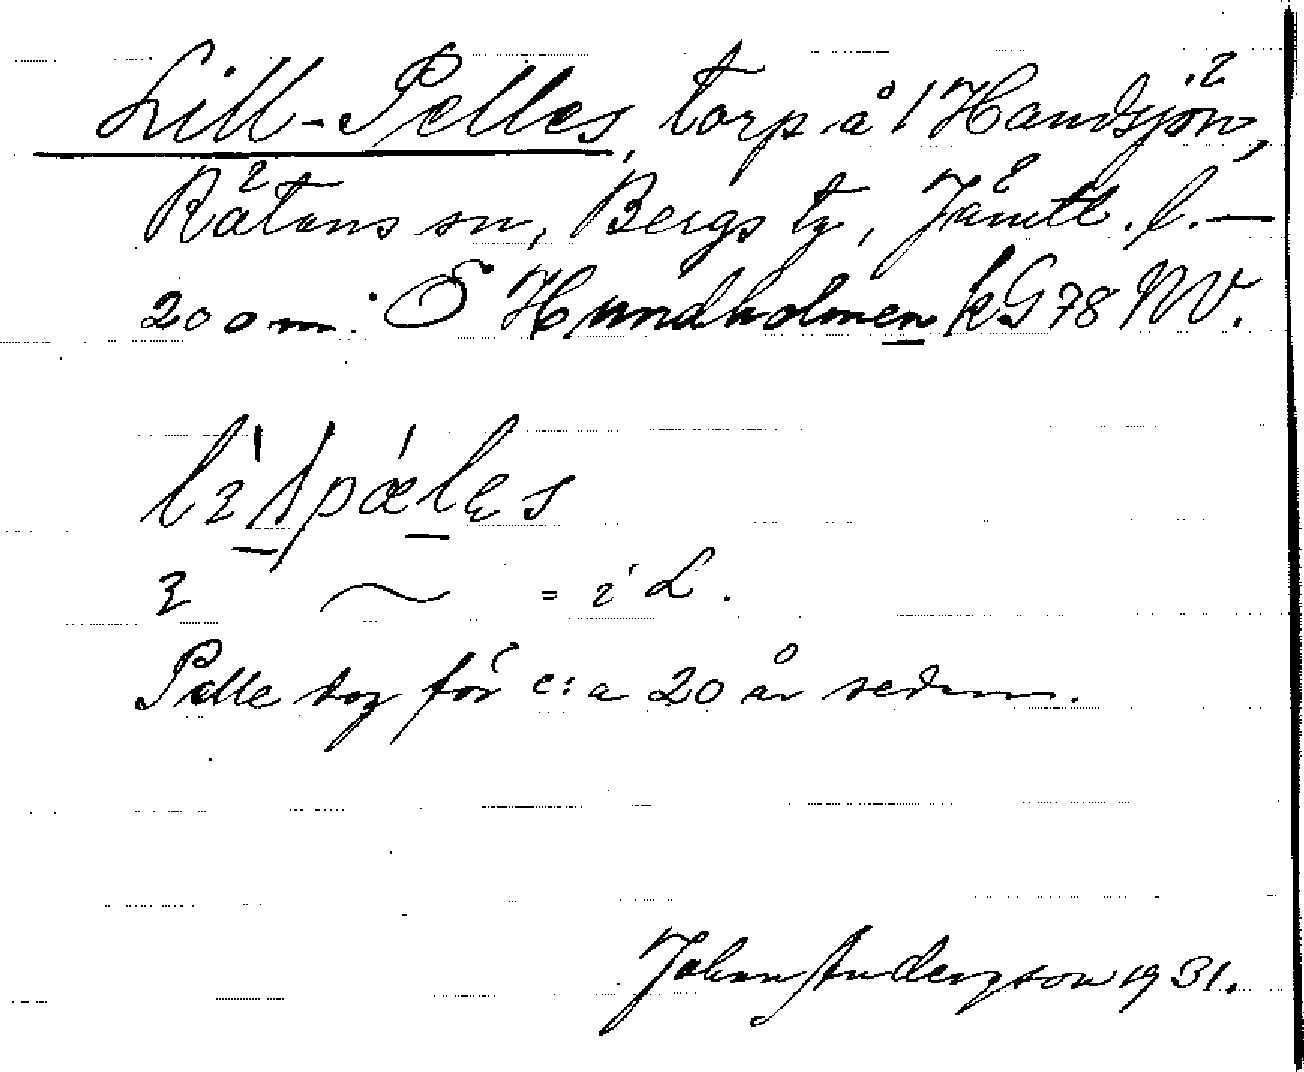 Lill-Pelles, torp å 1 Handsjön,
Rätans sn, Bergs tg, Jämtl. l. —
200 m. S Hundholmen k. G 78 NV.
pæles
= i L.
Pelle dog för c:a 20 år sedan.
Johan Anderson 1931.